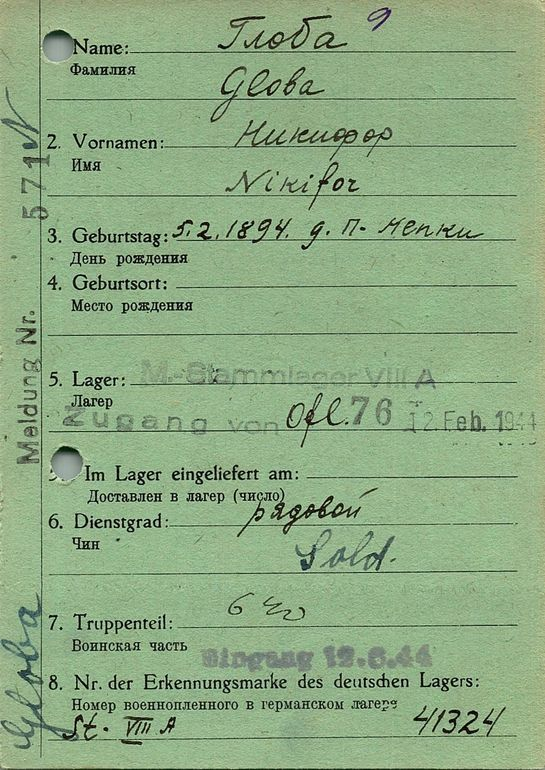 Name: Глоба
Фамилия
Globa
2. Vornamen: Никифор
Имя
Nikifor
3. Geburtstag: 5.2.1894. д. П-
День рождения
4. Geburtsort:
Место рождения
M.-Stammlager VIII A
5. Lager:
Лагер
Zugang von Ofl. 76 12. Feb. 1944
Im Lager eingeliefert am:
Доставлен в лагер (число)
6. Dienstgrad: рядовой
Чин
Sold.
7. Truppenteil:
Воинская часть
Eingang 12.6.44
8. Nr. der Erkennungsmarke des deutschen Lagers:
Номер военнопленного в германском лагере
St. VIII A 41324
Meldung Nr. 571
Globa